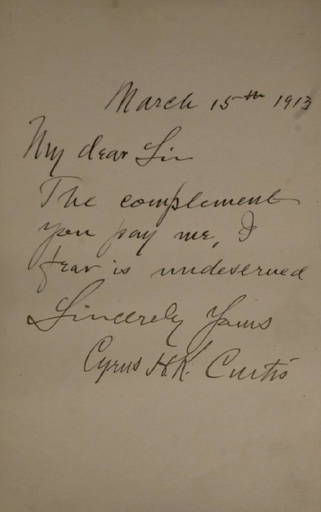 March 15th 1913
My dear Sir
The complement
you pay me, I
fear is undeserved
Sincerely Yours
Cyrus H.K. Curtis